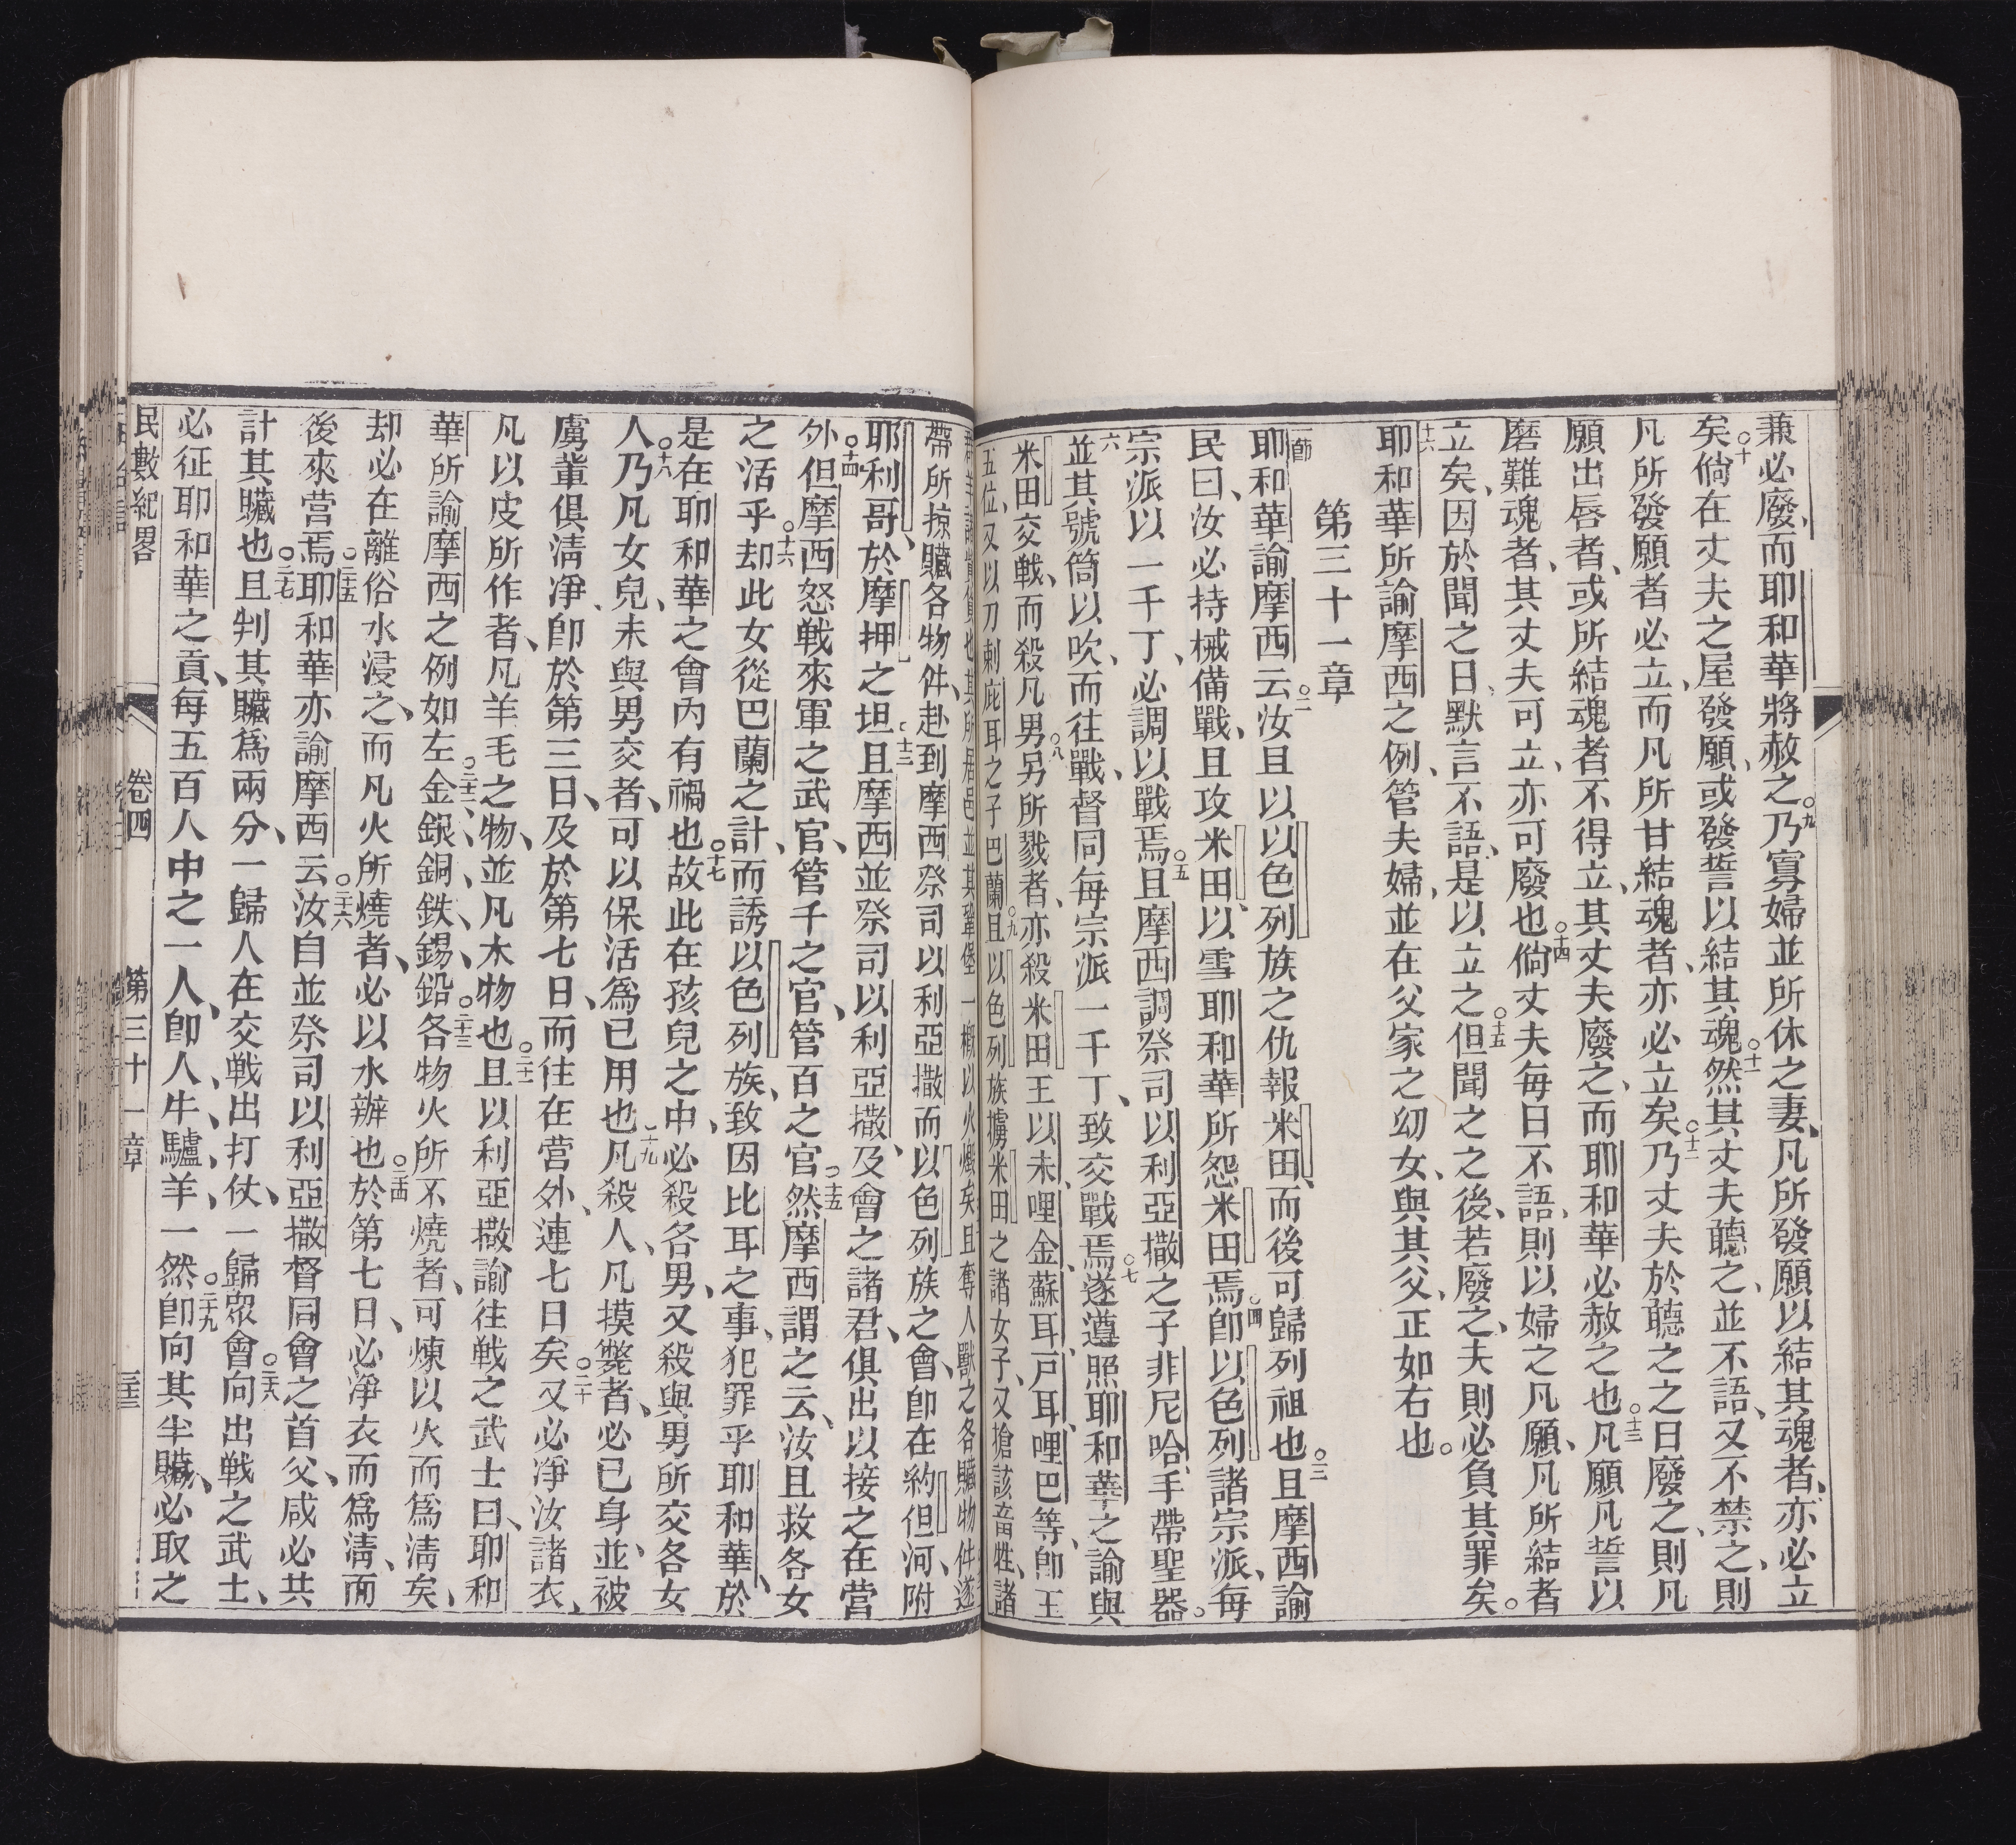 兼必廢、而耶和華將赦之○九乃寡婦並所休之妻、凡所發願以結其魂者、亦必立
矣○十倘在丈夫之屋發願、或發誓以結其魂○十一然其丈夫聽之、並不語、又不禁之、則
凡所發願者必立、而凡所甘結魂者、亦必立矣○十二乃丈夫於聽之之日廢之、則凡
願出唇者、或所結魂者、不得立、其丈夫廢之、而耶和華必赦之也○十三凡願凡誓以
磨難魂者、其丈夫可立、亦可廢也○十四倘丈夫每日不語、則以婦之凡願、凡所結者
立矣、因於聞之日、默言不語、是以立之○十五但聞之之後、若廢之、夫則必負其罪矣。
十六耶和華所諭摩西之例、管夫婦、並在父家之幼女、與其父、正如右也。
第三十一章
一節耶和華諭摩西云○二汝且以以色列族之仇報米田、而後可歸列祖也○三且摩西諭
民曰、汝必持械備戰、且攻米田、以雪耶和華所怨米田焉○四卽以色列諸宗派、每
宗派以一千丁、必調以戰焉○五且摩西調祭司以利亞撒之子非尼哈、手帶聖器。
六並其號筒以吹、而往戰、督同每宗派一千丁、致交戰焉○七遂遵照耶和華之諭與
米田交戰、而殺凡男○八另所戮者、亦殺米田王以未、哩金、蘇耳、戶耳、哩巴等、卽王
五位、又以刀刺庇耳之子巴蘭○九且以色列族擄米田之諸女子、又搶該畜牲、諸
帶所掠贓各物件、赴到摩西祭司以利亞撒而以色列族之會、卽在約但河、附
耶利哥、於摩押之坦○十三且摩西並祭司以利亞撒、及會之諸君、俱出以接之在營
外○十四但摩西怒戰來軍之武官、管千之官、管百之官○十五然摩西謂之云、汝且救各女
之活乎○十六却此女從巴蘭之計、而誘以色列族、致因比耳之事、犯罪乎耶和華、於
是在耶和華之會內有禍也○十七故此在孩兒之中、必殺各男、又殺與男所交各女
人○十八乃凡女兒、未與男交者、可以保活爲已用也○十九凡殺人、凡摸斃者、必已身、並被
虜輩俱淸凈、卽於第三日、及於第七日、而住在營外、連七日矣○二十又必凈汝諸衣、
凡以皮所作者、凡羊毛之物、並凡木物也○二十一且以利亞撒諭往戰之武士曰、耶和
華所諭摩西之例如左○二十二金、銀、銅、鉄、錫、鉛○二十三各物火所不燒者、可煉以火而爲淸矣、
却必在離俗水浸之、而凡火所燒者、必以水辦也○二十四於第七日、必凈衣而爲淸、而
後來營焉○二十五耶和華亦諭摩西云○二十六汝自並祭司以利亞撒督同會之首父、咸必共
計其贓也○二十七且判其贓爲兩分、一歸人在交戰出打仗、一歸衆會○二十八向出戰之武士、
必征耶和華之貢、每五百人中之一人、卽人、牛、驢、羊一然○二十九卽向其半贓、必取之
民數紀畧 卷四 第三十一章